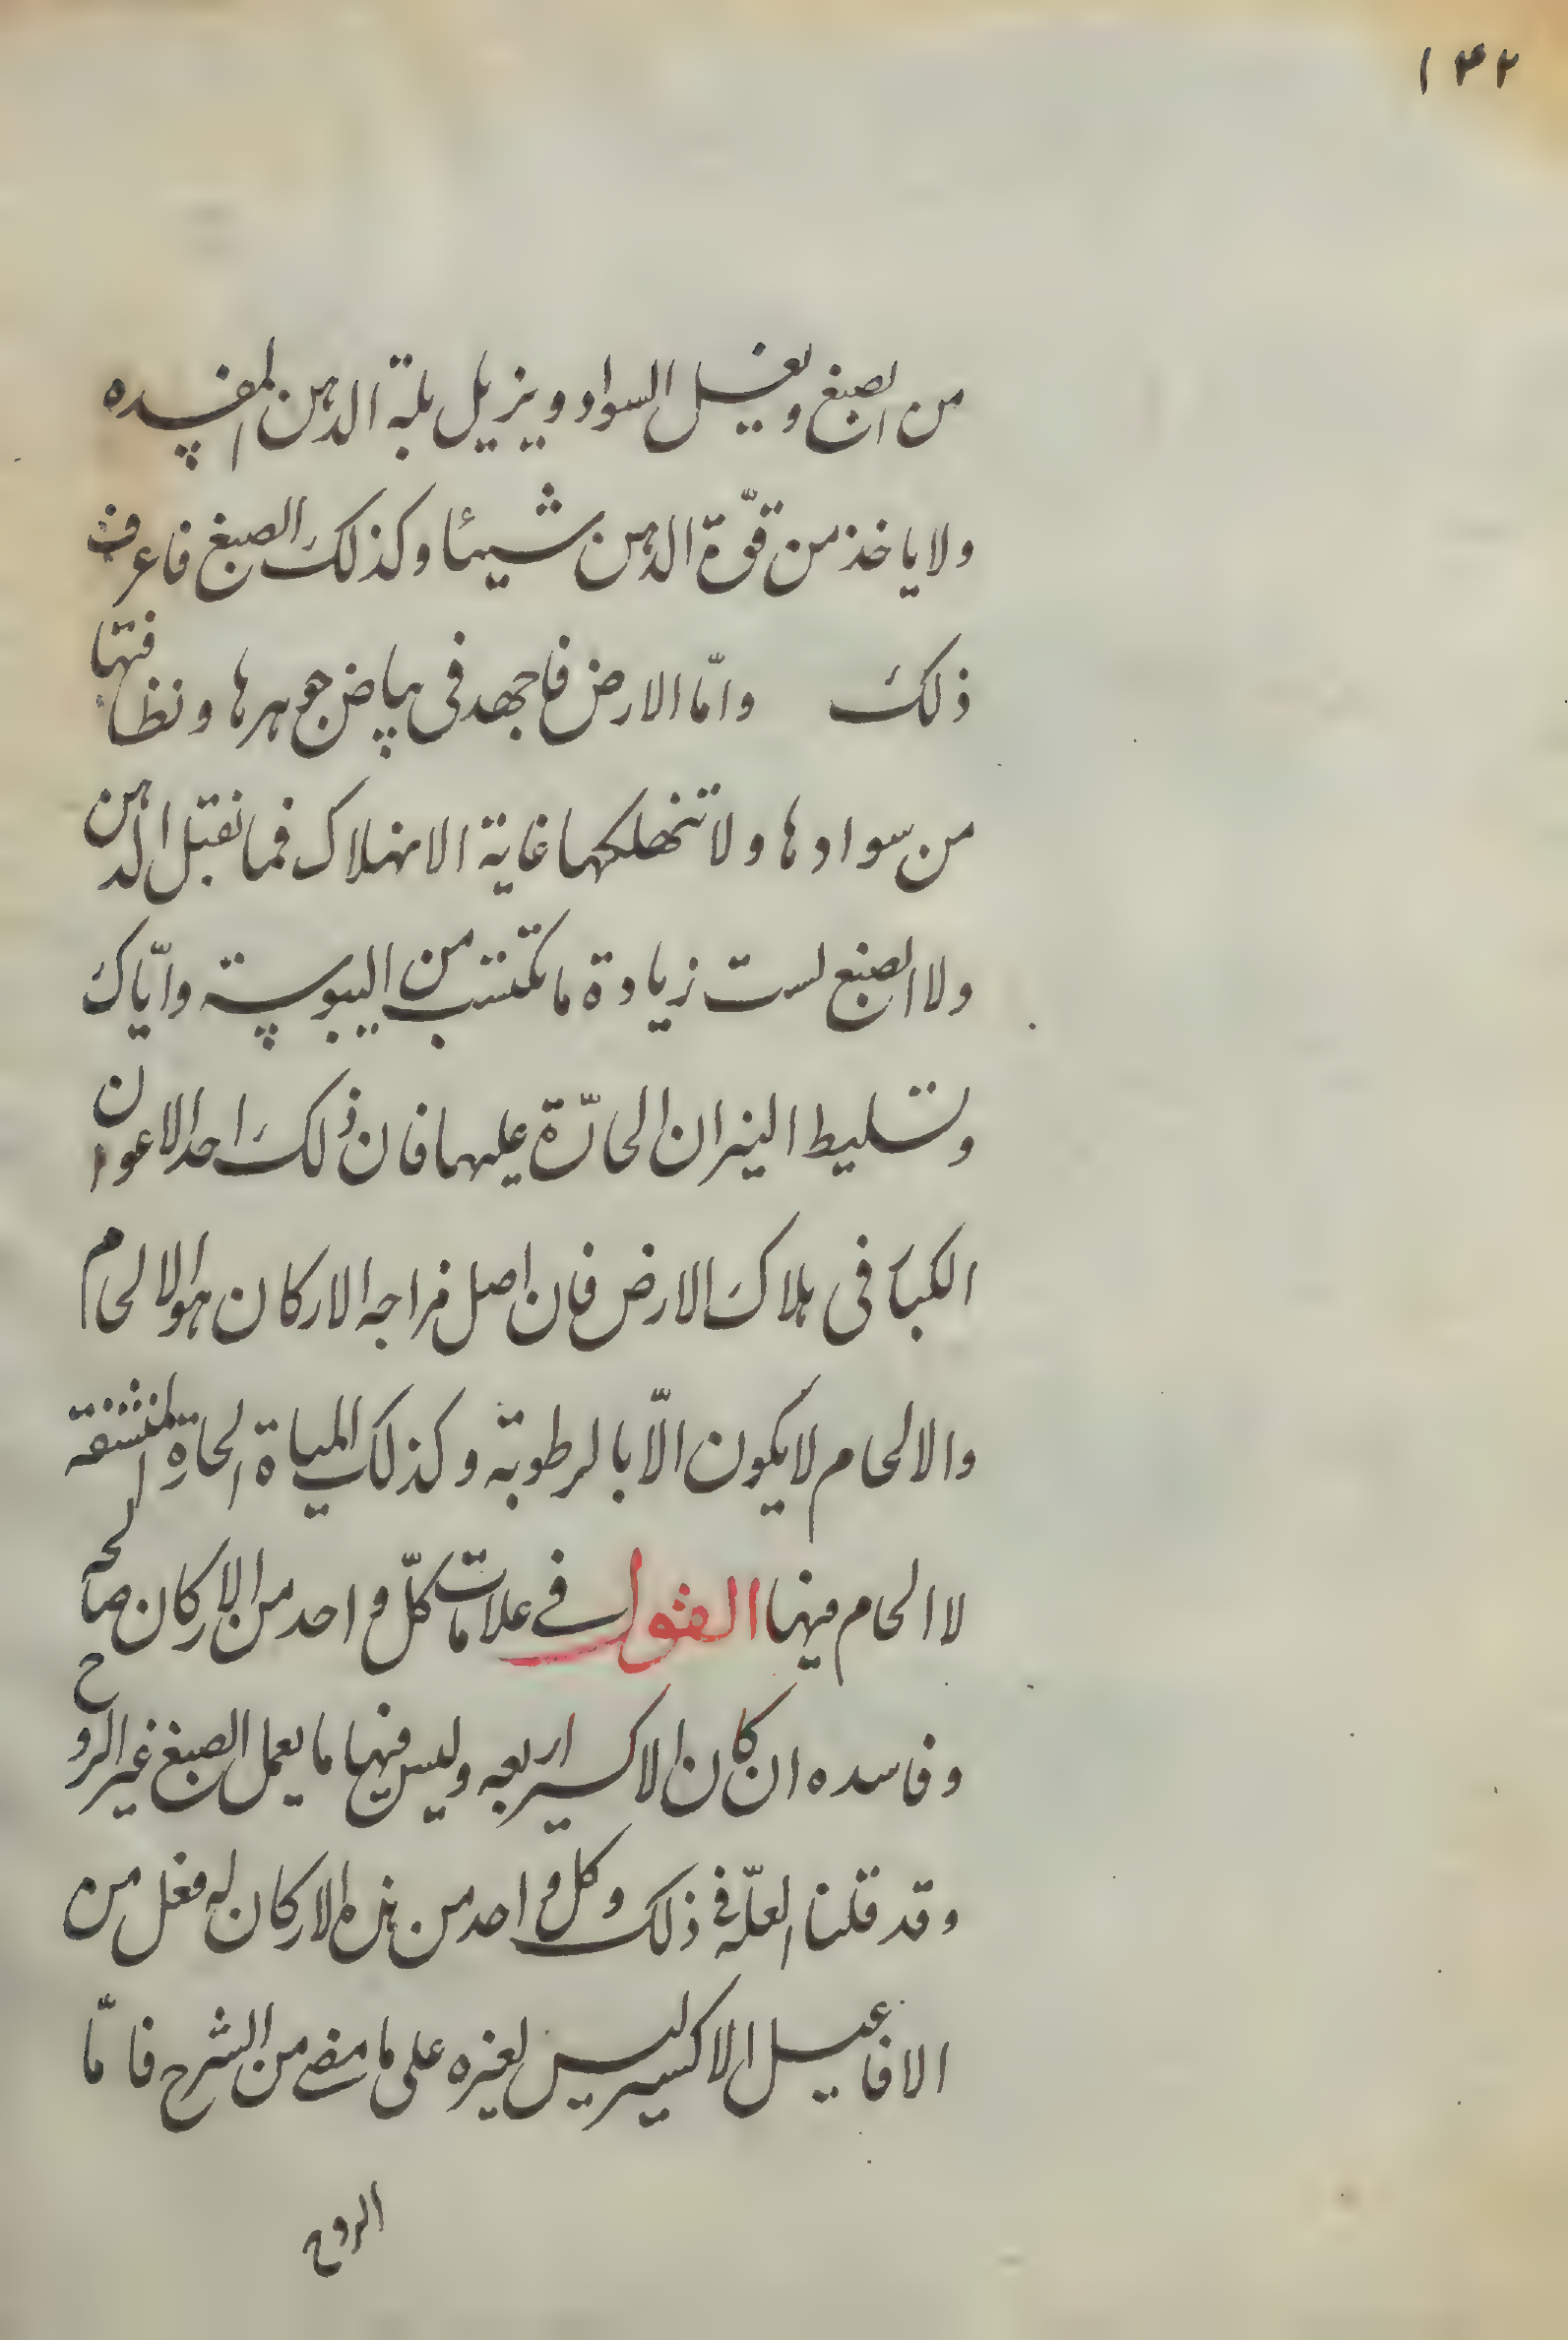 ١٣٢
من الصبغ ويغسل السواد ويزيل بلة الدهن المفسده
ولا ياخذ من قوّة الدهن شيئا وكذلك الصبغ فاعرف
ذلك وامّا الارض فاجهد فى بياض جوهرها ونظافتها
من سوادها ولا تنهلكها غاية الانهلاك فما تقبل الدهن
ولا الصبغ لست زيادة ما تكتسب من اليبوسة وايّاك
وتسليط النيران الحارّة عليها فان ذلك احد الاعوان
الكبار فى هلاك الارض فان اصل مزاجه الاركان هو الالحام
والالحام لا يكون الّا بالرطوبة وكذلك المياة الحارة المنشفة
لا الحام فيها القول في علامات كلّ واحد من الاركان صالحه
وفاسده ان كان الاكسير اربعه وليس فيها ما يعمل الصبغ غير الروح
وقد قلنا العلّه فى ذلك وكل واحد من هذه الاركان له فعل من
الافاعيل الاكسير ليس لغيره على ما مضى من الشرح فامّا
الروح